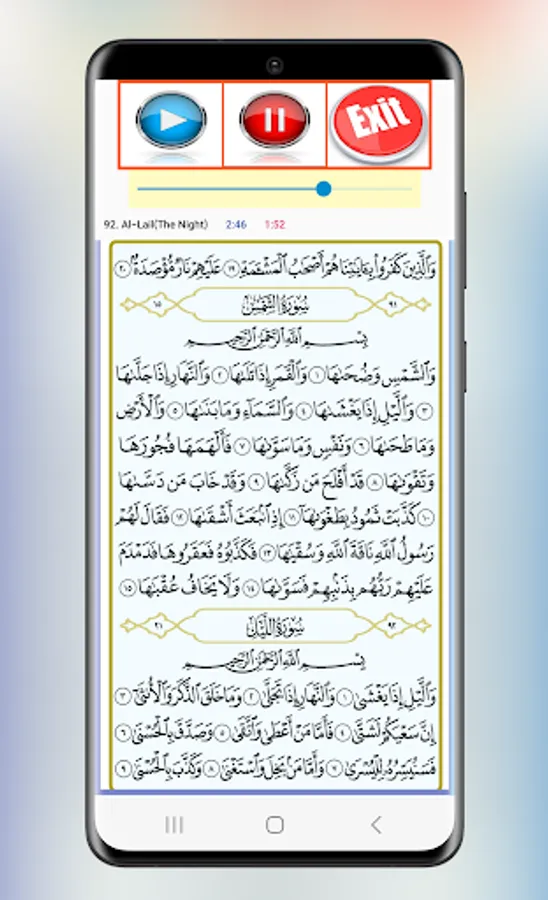 Exit
92. Al-Lail(The Night) 2:46 1:52
وَٱلَّذِينَ كَفَرُوا۟ بِـَٔايَـٰتِنَا هُمْ أَصْحَـٰبُ ٱلْمَشْـَٔمَةِ ١٩ عَلَيْهِمْ نَارٌ مُّؤْصَدَةٌۢ ٢٠
٩١ سُورَةُ الشَّمْسِ ١٥
بِسْمِ ٱللَّهِ ٱلرَّحْمَـٰنِ ٱلرَّحِيمِ
وَٱلشَّمْسِ وَضُحَىٰهَا ١ وَٱلْقَمَرِ إِذَا تَلَىٰهَا ٢ وَٱلنَّهَارِ إِذَا جَلَّىٰهَا
٣ وَٱلَّيْلِ إِذَا يَغْشَىٰهَا ٤ وَٱلسَّمَآءِ وَمَا بَنَىٰهَا ٥ وَٱلْأَرْضِ
وَمَا طَحَىٰهَا ٦ وَنَفْسٍ وَمَا سَوَّىٰهَا ٧ فَأَلْهَمَهَا فُجُورَهَا
وَتَقْوَىٰهَا ٨ قَدْ أَفْلَحَ مَن زَكَّىٰهَا ٩ وَقَدْ خَابَ مَن دَسَّىٰهَا
١٠ كَذَّبَتْ ثَمُودُ بِطَغْوَىٰهَآ ١١ إِذِ ٱنۢبَعَثَ أَشْقَىٰهَا ١٢ فَقَالَ لَهُمْ
رَسُولُ ٱللَّهِ نَاقَةَ ٱللَّهِ وَسُقْيَـٰهَا ١٣ فَكَذَّبُوهُ فَعَقَرُوهَا فَدَمْدَمَ
عَلَيْهِمْ رَبُّهُم بِذَنۢبِهِمْ فَسَوَّىٰهَا ١٤ وَلَا يَخَافُ عُقْبَـٰهَا ١٥
٩٢ سُورَةُ اللَّيْلِ ٢١
بِسْمِ ٱللَّهِ ٱلرَّحْمَـٰنِ ٱلرَّحِيمِ
وَٱلَّيْلِ إِذَا يَغْشَىٰ ١ وَٱلنَّهَارِ إِذَا تَجَلَّىٰ ٢ وَمَا خَلَقَ ٱلذَّكَرَ وَٱلْأُنثَىٰٓ ٣
إِنَّ سَعْيَكُمْ لَشَتَّىٰ ٤ فَأَمَّا مَنْ أَعْطَىٰ وَٱتَّقَىٰ ٥ وَصَدَّقَ بِٱلْحُسْنَىٰ ٦
فَسَنُيَسِّرُهُۥ لِلْيُسْرَىٰ ٧ وَأَمَّا مَنۢ بَخِلَ وَٱسْتَغْنَىٰ ٨ وَكَذَّبَ بِٱلْحُسْنَىٰ ٩